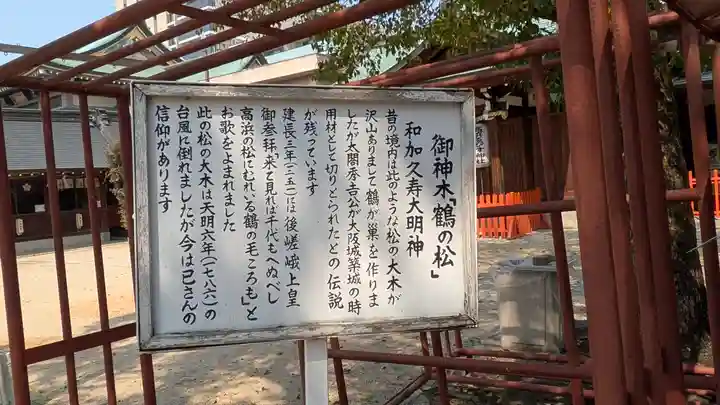 御神木「鶴の松」
和加久寿大明神
昔の境内は此のような松の大木が
沢山ありまして鶴が巣を作りま
したが太閤秀吉公が大阪城築城の時
用材として切りとられたとの伝説
が残っています
建長三年(一二五一)には後嵯峨上皇
御参拝来て見れば千代もへぬべし
高浜の松にむれゐる鶴の毛ころも」と
お歌をよまれました
此の松の大木は天明六年(一七八六)の
台風に倒れましたが今は巳さんの
信仰があります